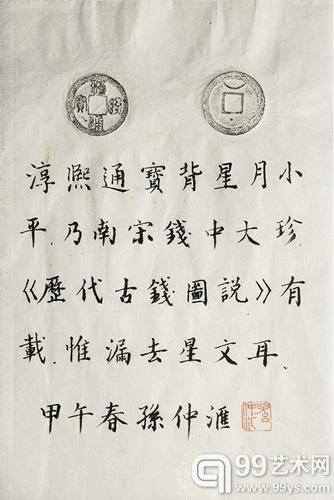 淳熙通寳背星月小
平.乃南宋錢中大珍.
《歷代古錢圖説》有
載.惟漏去星文耳.
甲午春孫仲滙
99艺术网
www.99ys.com